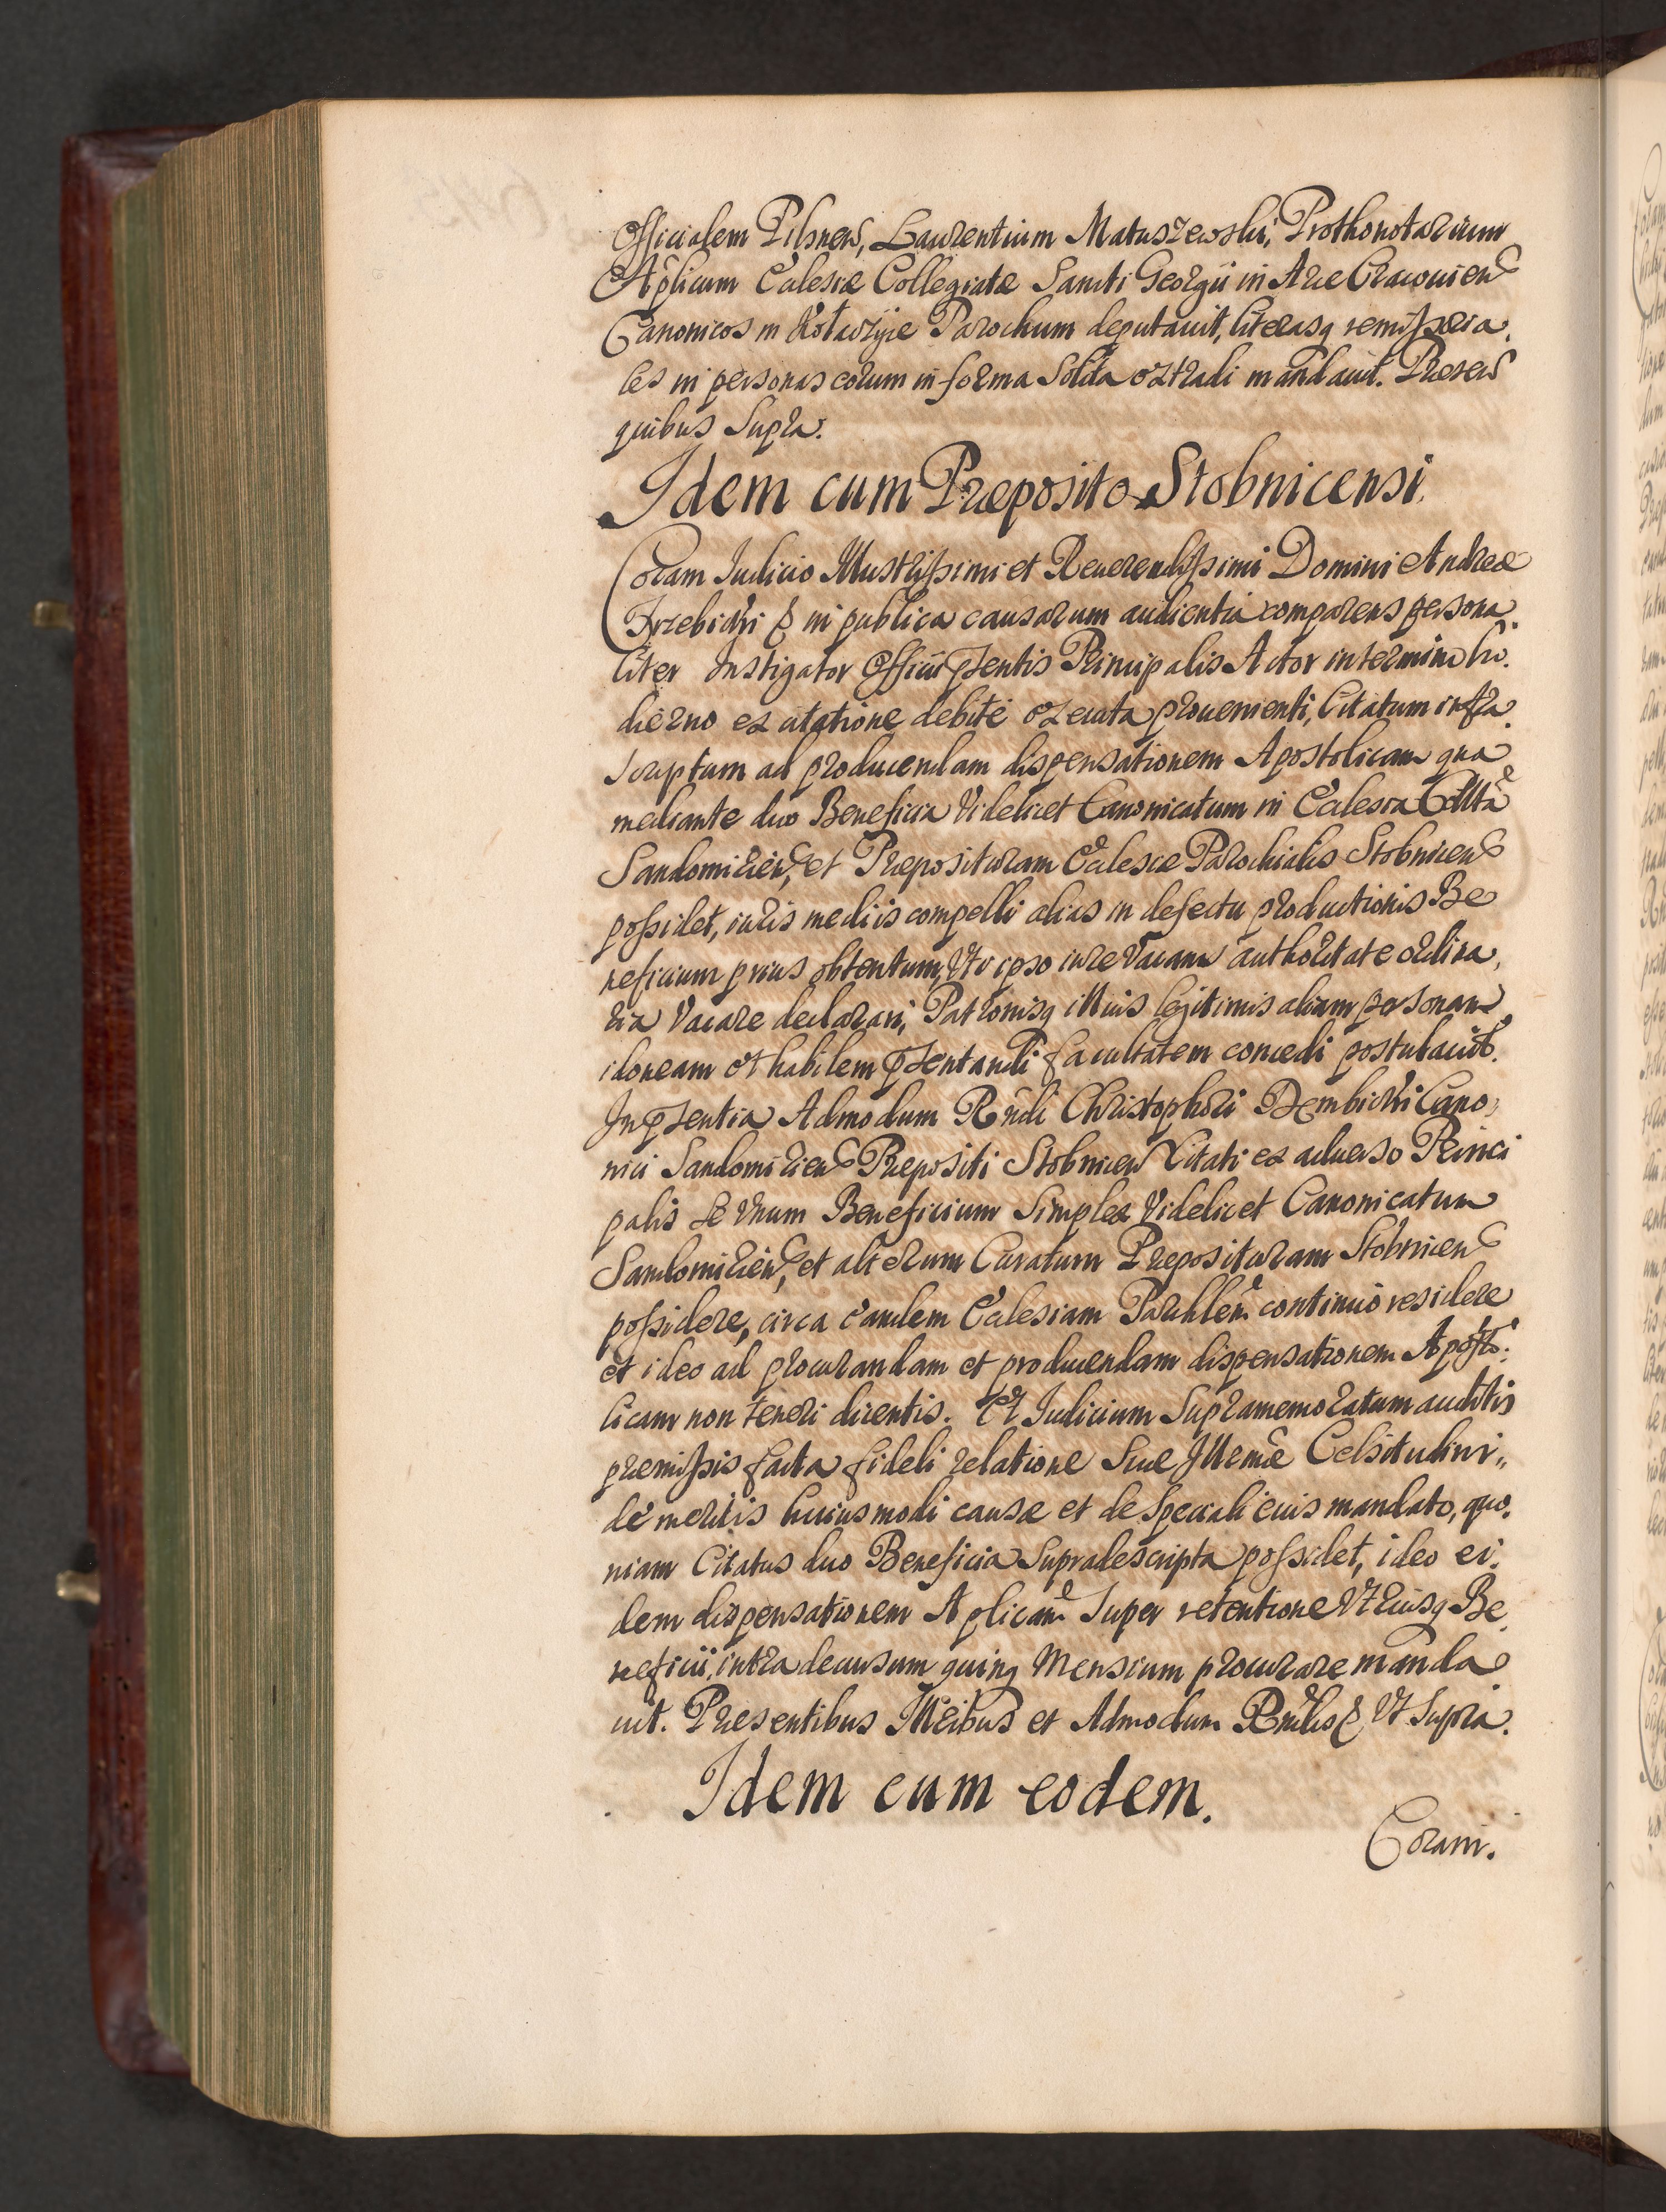 Officialem Pilsnen, Laurentium Matuszewski, Prothonotarium
Aplicum Ecclesiæ Collegiatæ Sancti Georgii in Arce Cracouien
Canonicos in Parochum deputauit, literasq remissoria,
les in personas eorum in forma solita extradi mandauit. Presen
quibus Supra.
Idem cum Præposito Stobnicensi.
Coram Iudicio Illustrissimi et Reuerendissimi Domini Andreæ
Trzebicki & in publica causarum audientia comparens persona
liter Instigator Officii psentis Principalis Actor in termino ho
dierno ex citatione debite executa proueniente, Citatum infra
scriptum ad producendam dispensationem Apostolicam qua
mediante duo Beneficia Videlicet Canonicatum in Ecclesia Collta
Sandomirien, et Præposituram Ecclesiæ Parochialis Stobnicen
possidet, iuris mediis compelli alias in defectu productionis Be
neficium prius obtentum, Vti ipso iure Vacans authoritate ordina,
ria Vacare declarari, Patronisq illius legitimis aliam personam
idoneam et habilem psentandi facultatem concedi postulauit.
In psentia Admodum Rndi Christophori Dembicki Cano,
nici Sandomirien Præpositi Stobnicen Citati ex aduerso Princi
palis se Vnum Beneficium Simplex Videlicet Canonicatum
Sandomirien, et alterum Curatum Præposituram Stobnicen
possidere, circa eandem Ecclesiam Parchlem continuo residere
et ideo ad procurandam et producendam dispensationem Aposto:
licam non teneri dicentis. Et Iudicium Supramemoratum auditis
præmissis facta fideli relatione Suæ Illrmæ Celsitudini,,
de meritis huiusmodi causæ et de speciali eius mandato, quo,
niam Citatus duo Beneficia Supradescripta possidet, ideo ei,
dem dispensationem Aplicam Super retentione Vtriusq Be,
neficii, intra decursum quinq Mensium procurare manda
uit. Præsentibus Illribus et Admodum Rndis & Vt Supra.
Idem cum eodem.
Coram.